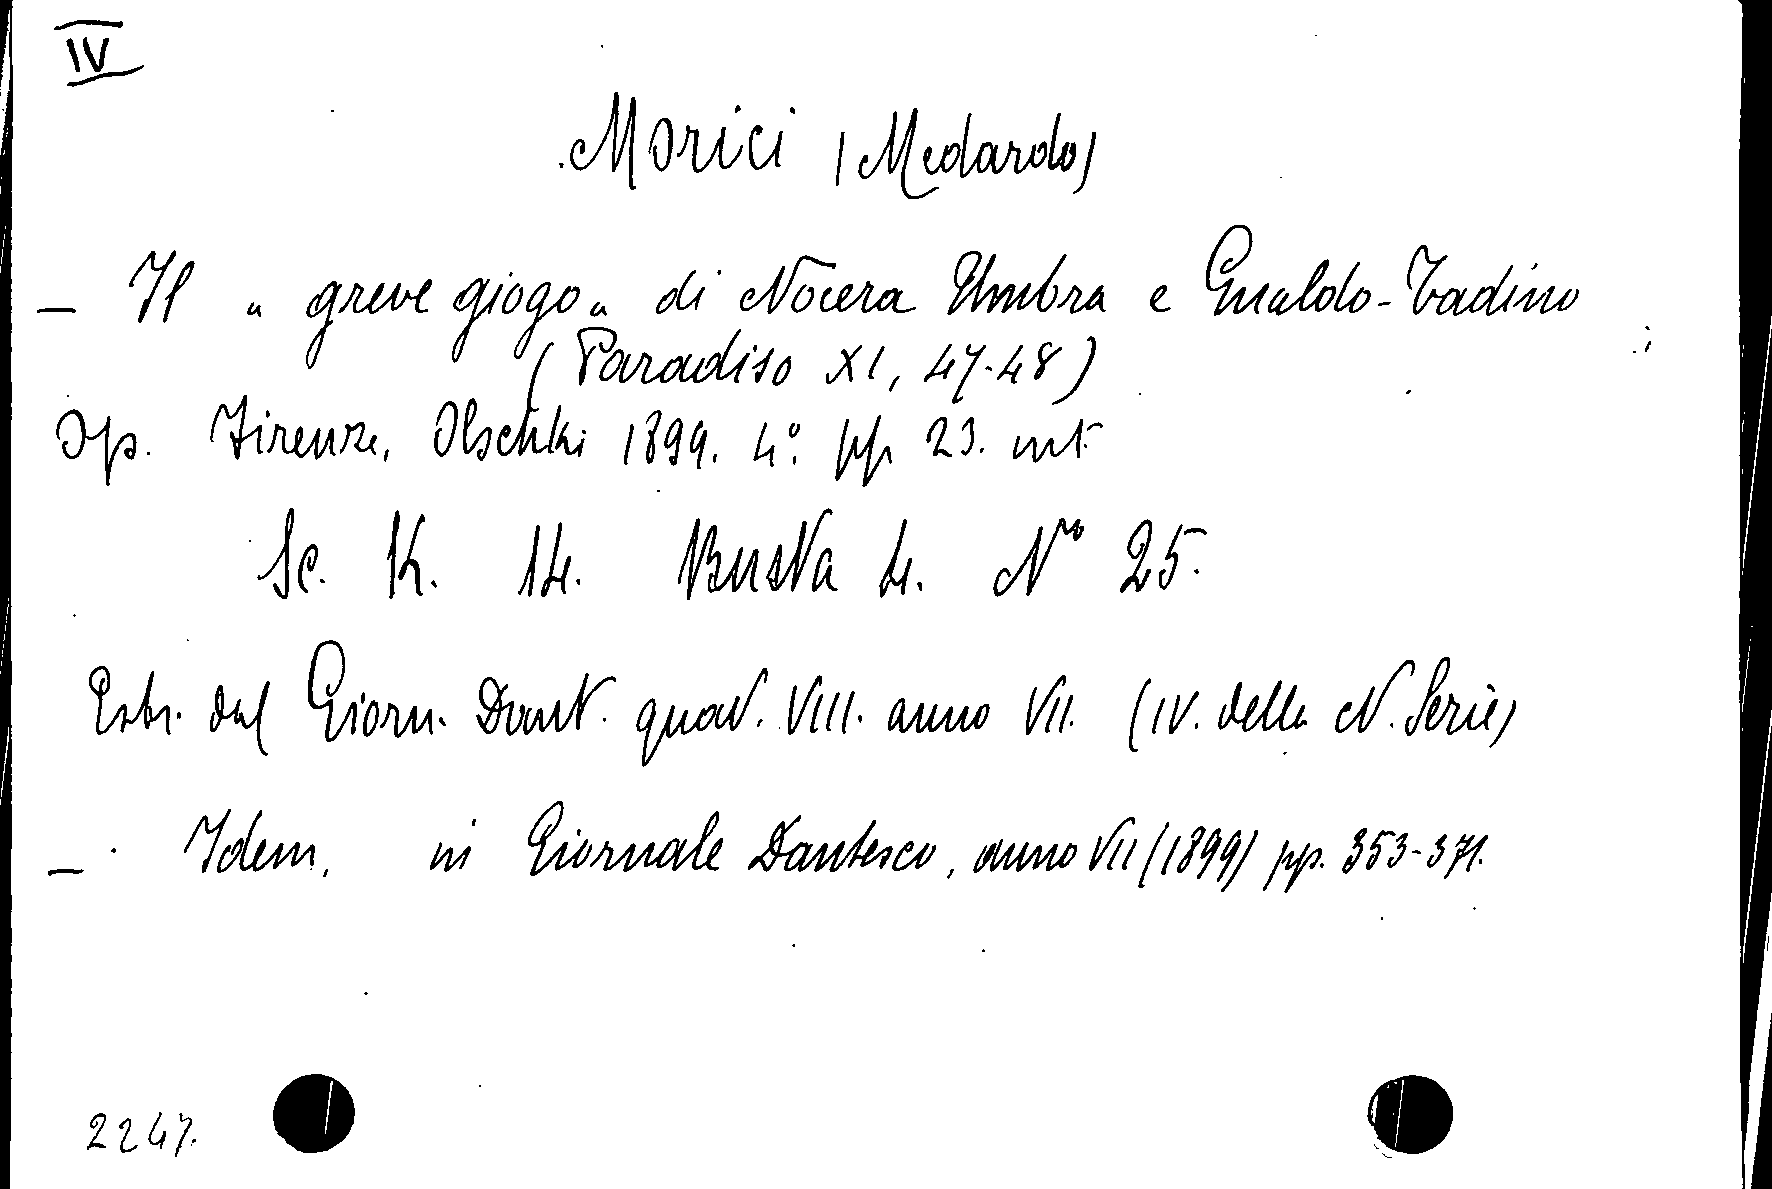 IV
Morici (Medardo)
— Il " greve giogo " di Nocera Umbra e Gualdo-Tadino
(Paradiso XI, 47-48)
Op. Firenze, Olschki 1899. 4º. pp. 23. int.
Sc. K. 14. Busta 4. Nº 25.
Estr. dal Giorn. Dant. quad. VIII. anno VII. (IV. della N. Serie)
— Idem, in Giornale Dantesco, anno VII (1899) pp. 353-371.
2247.